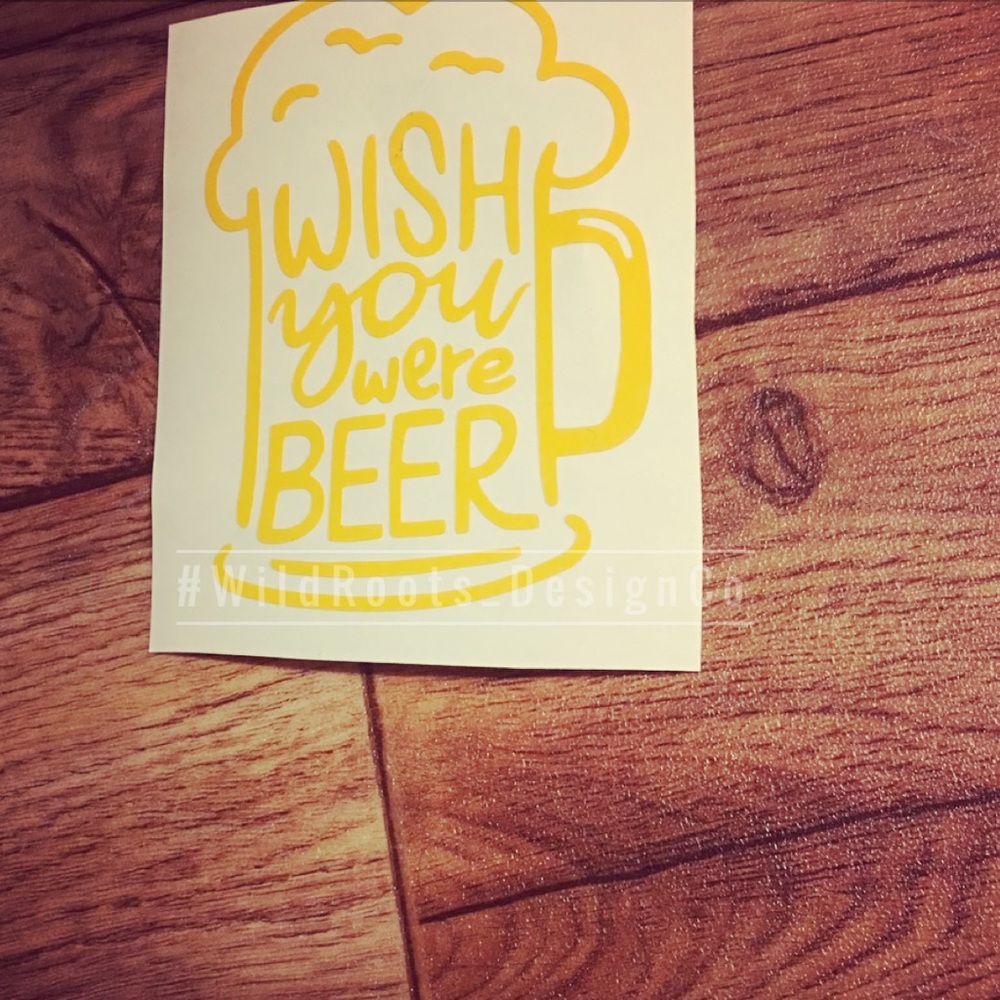 WISH
you
were
BEER
#WildRoots_DesignCo